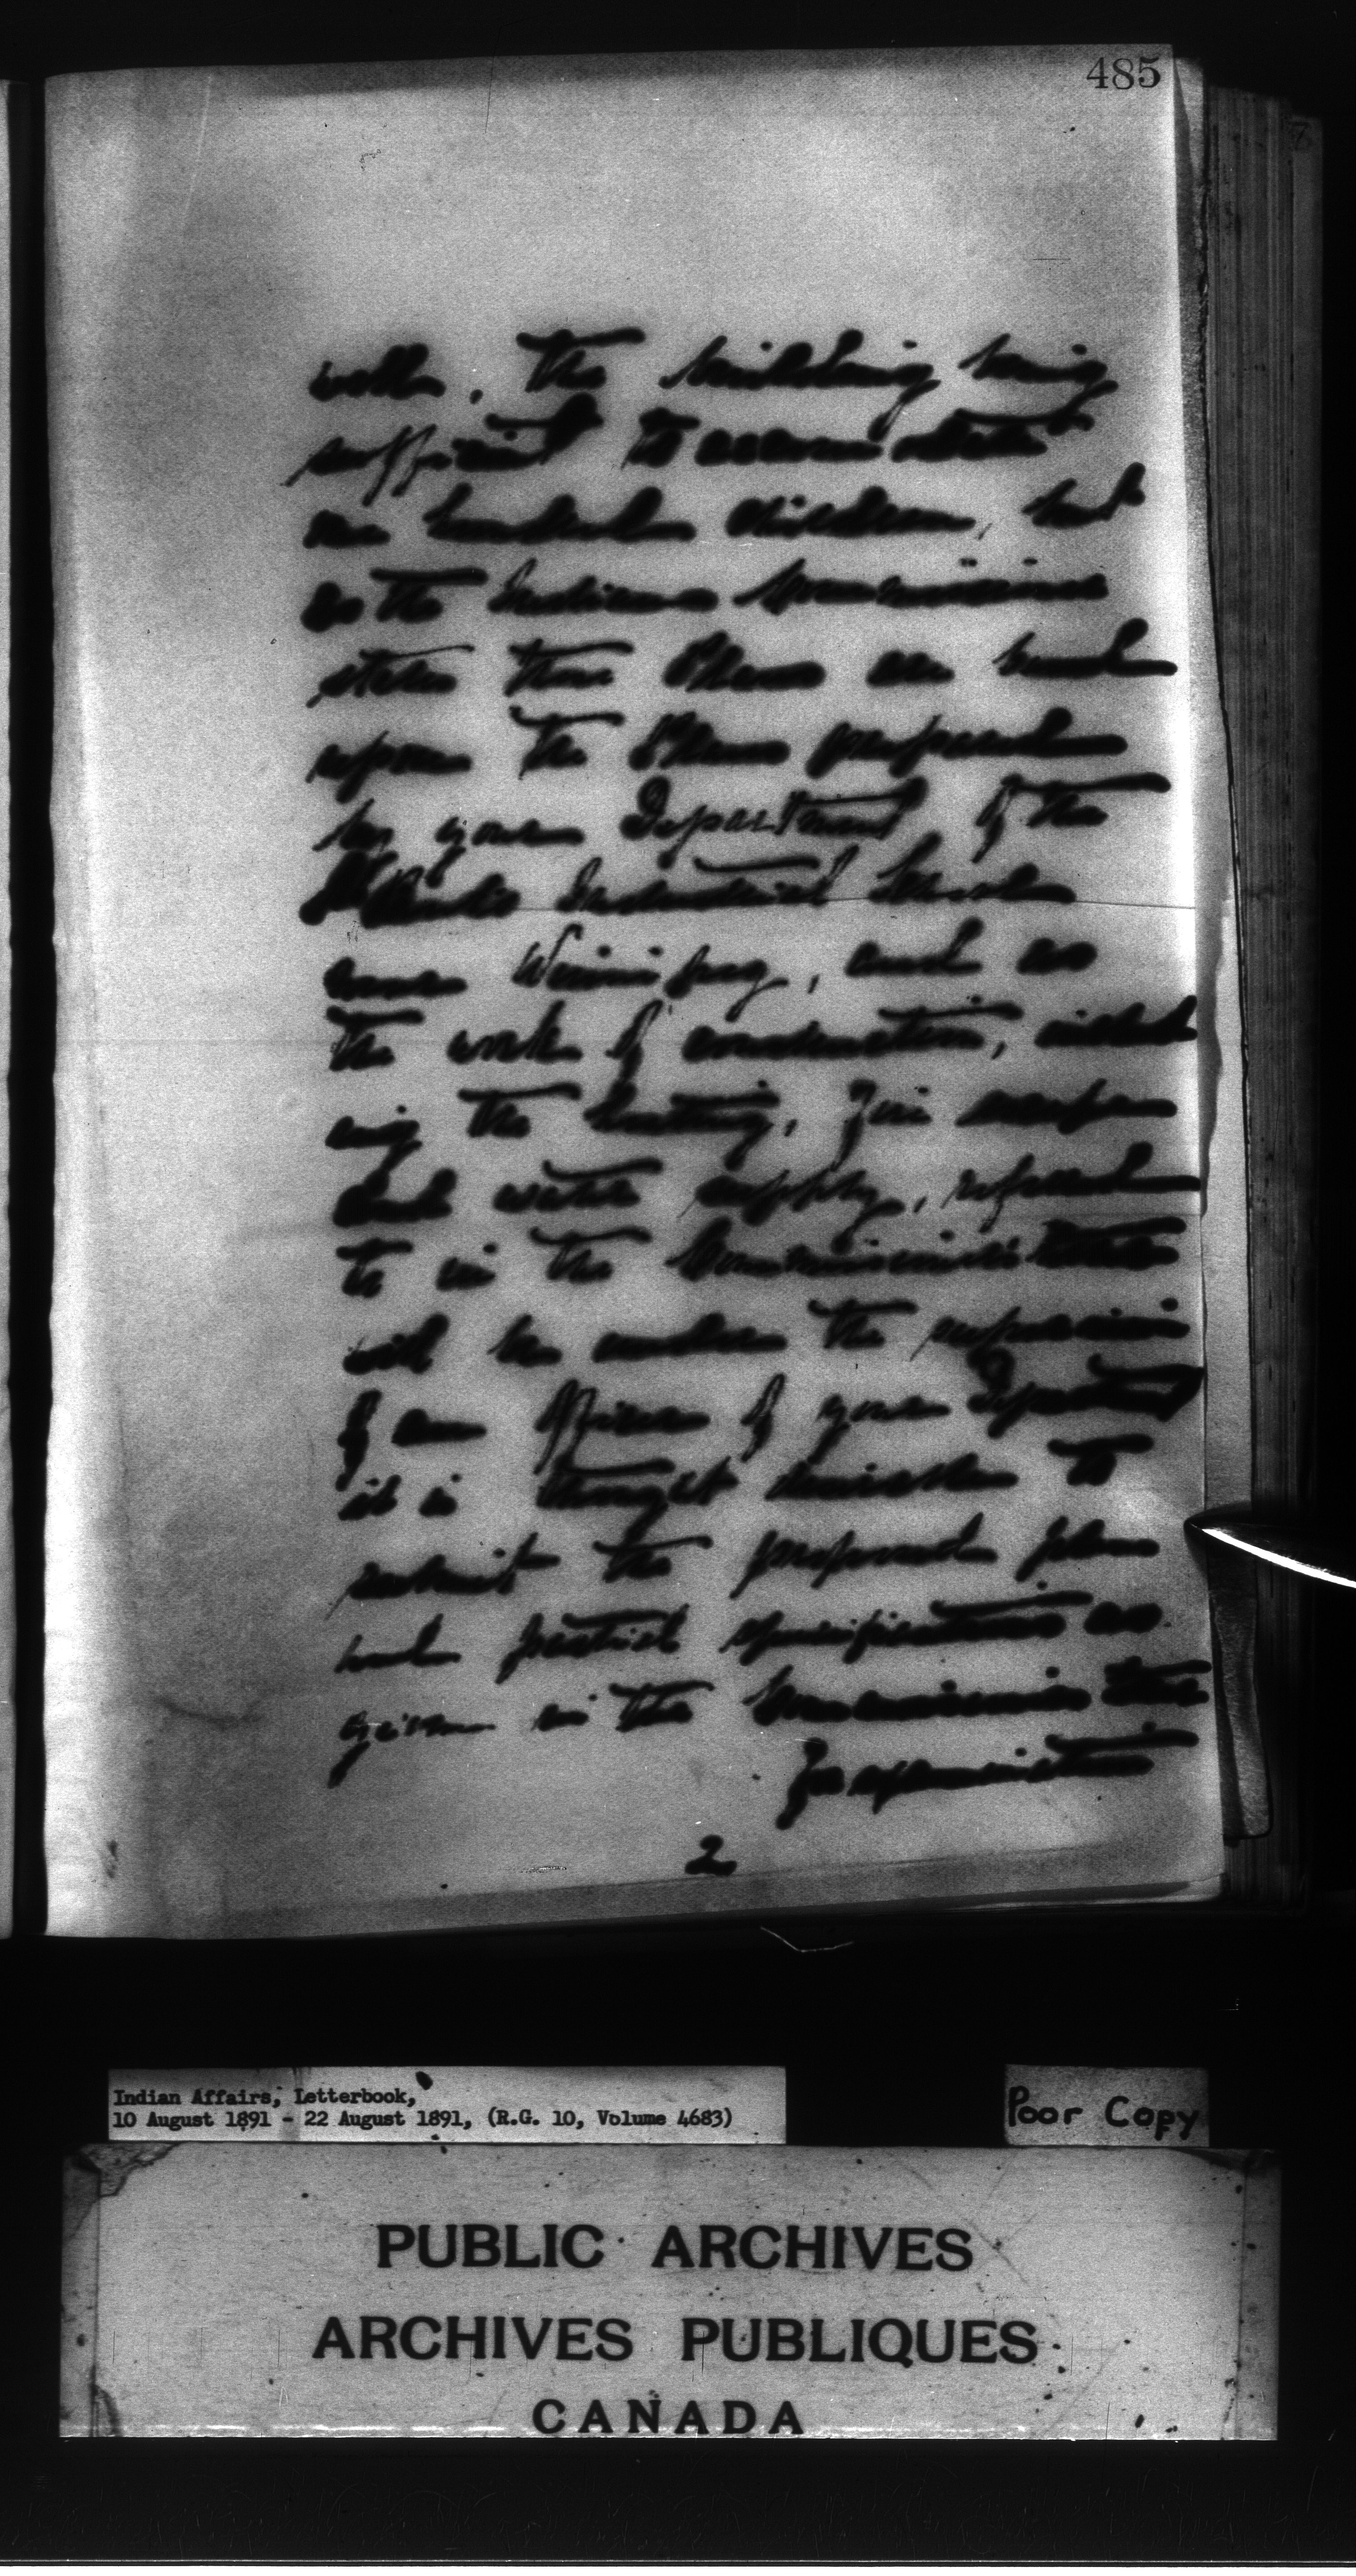 485
well, the building being
sufficient to accommodate
one hundred children, but
as the Indian Commissioner
states these Plans are based
upon the Plans prepared
by your Department of the
St Paul's Industrial School
near Winnipeg, and as
the work of construction, includ
ing the heating, fire escape
and water supply, referred
to in the Commissioner's letter
will be under the supervision
of an Officer of your Department
it is thought desirable to
submit the proposed plans
and partial specifications as
given in the Commissioner's letter
For examination
2
Indian Affairs, Letterbook,
10 August 1891 - 22 August 1891, (R.G. 10, Volume 4683)
Poor Copy
PUBLIC ARCHIVES
ARCHIVES PUBLIQUES
CANADA